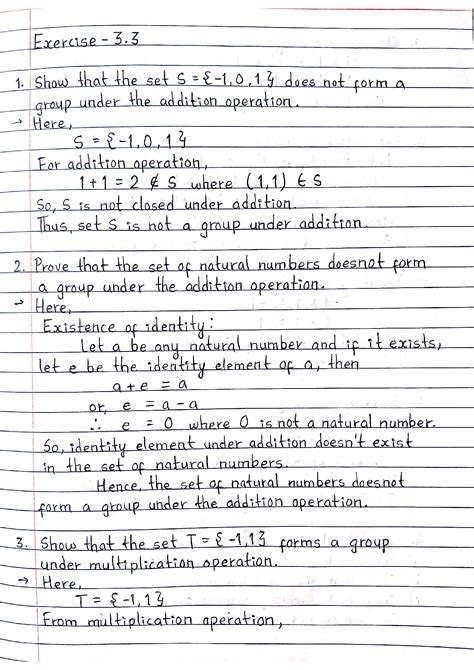 Exercise - 3.3
1. Show that the set S = {-1, 0, 1} does not form a
group under the addition operation.
→ Here,
S = {-1, 0, 1}
For addition operation,
1 + 1 = 2 ∉ S where (1,1) ∈ S
So, S is not closed under addition.
Thus, set S is not a group under addition.
2. Prove that the set of natural numbers doesnot form
a group under the addition operation.
→ Here,
Existence of identity:
Let a be any natural number and if it exists,
let e be the identity element of a, then
a + e = a
or, e = a - a
∴ e = 0 where 0 is not a natural number.
So, identity element under addition doesn't exist
in the set of natural numbers.
Hence, the set of natural numbers doesnot
form a group under the addition operation.
3. Show that the set T = {-1,1} forms a group
under multiplication operation.
→ Here,
T = {-1, 1}
From multiplication operation,